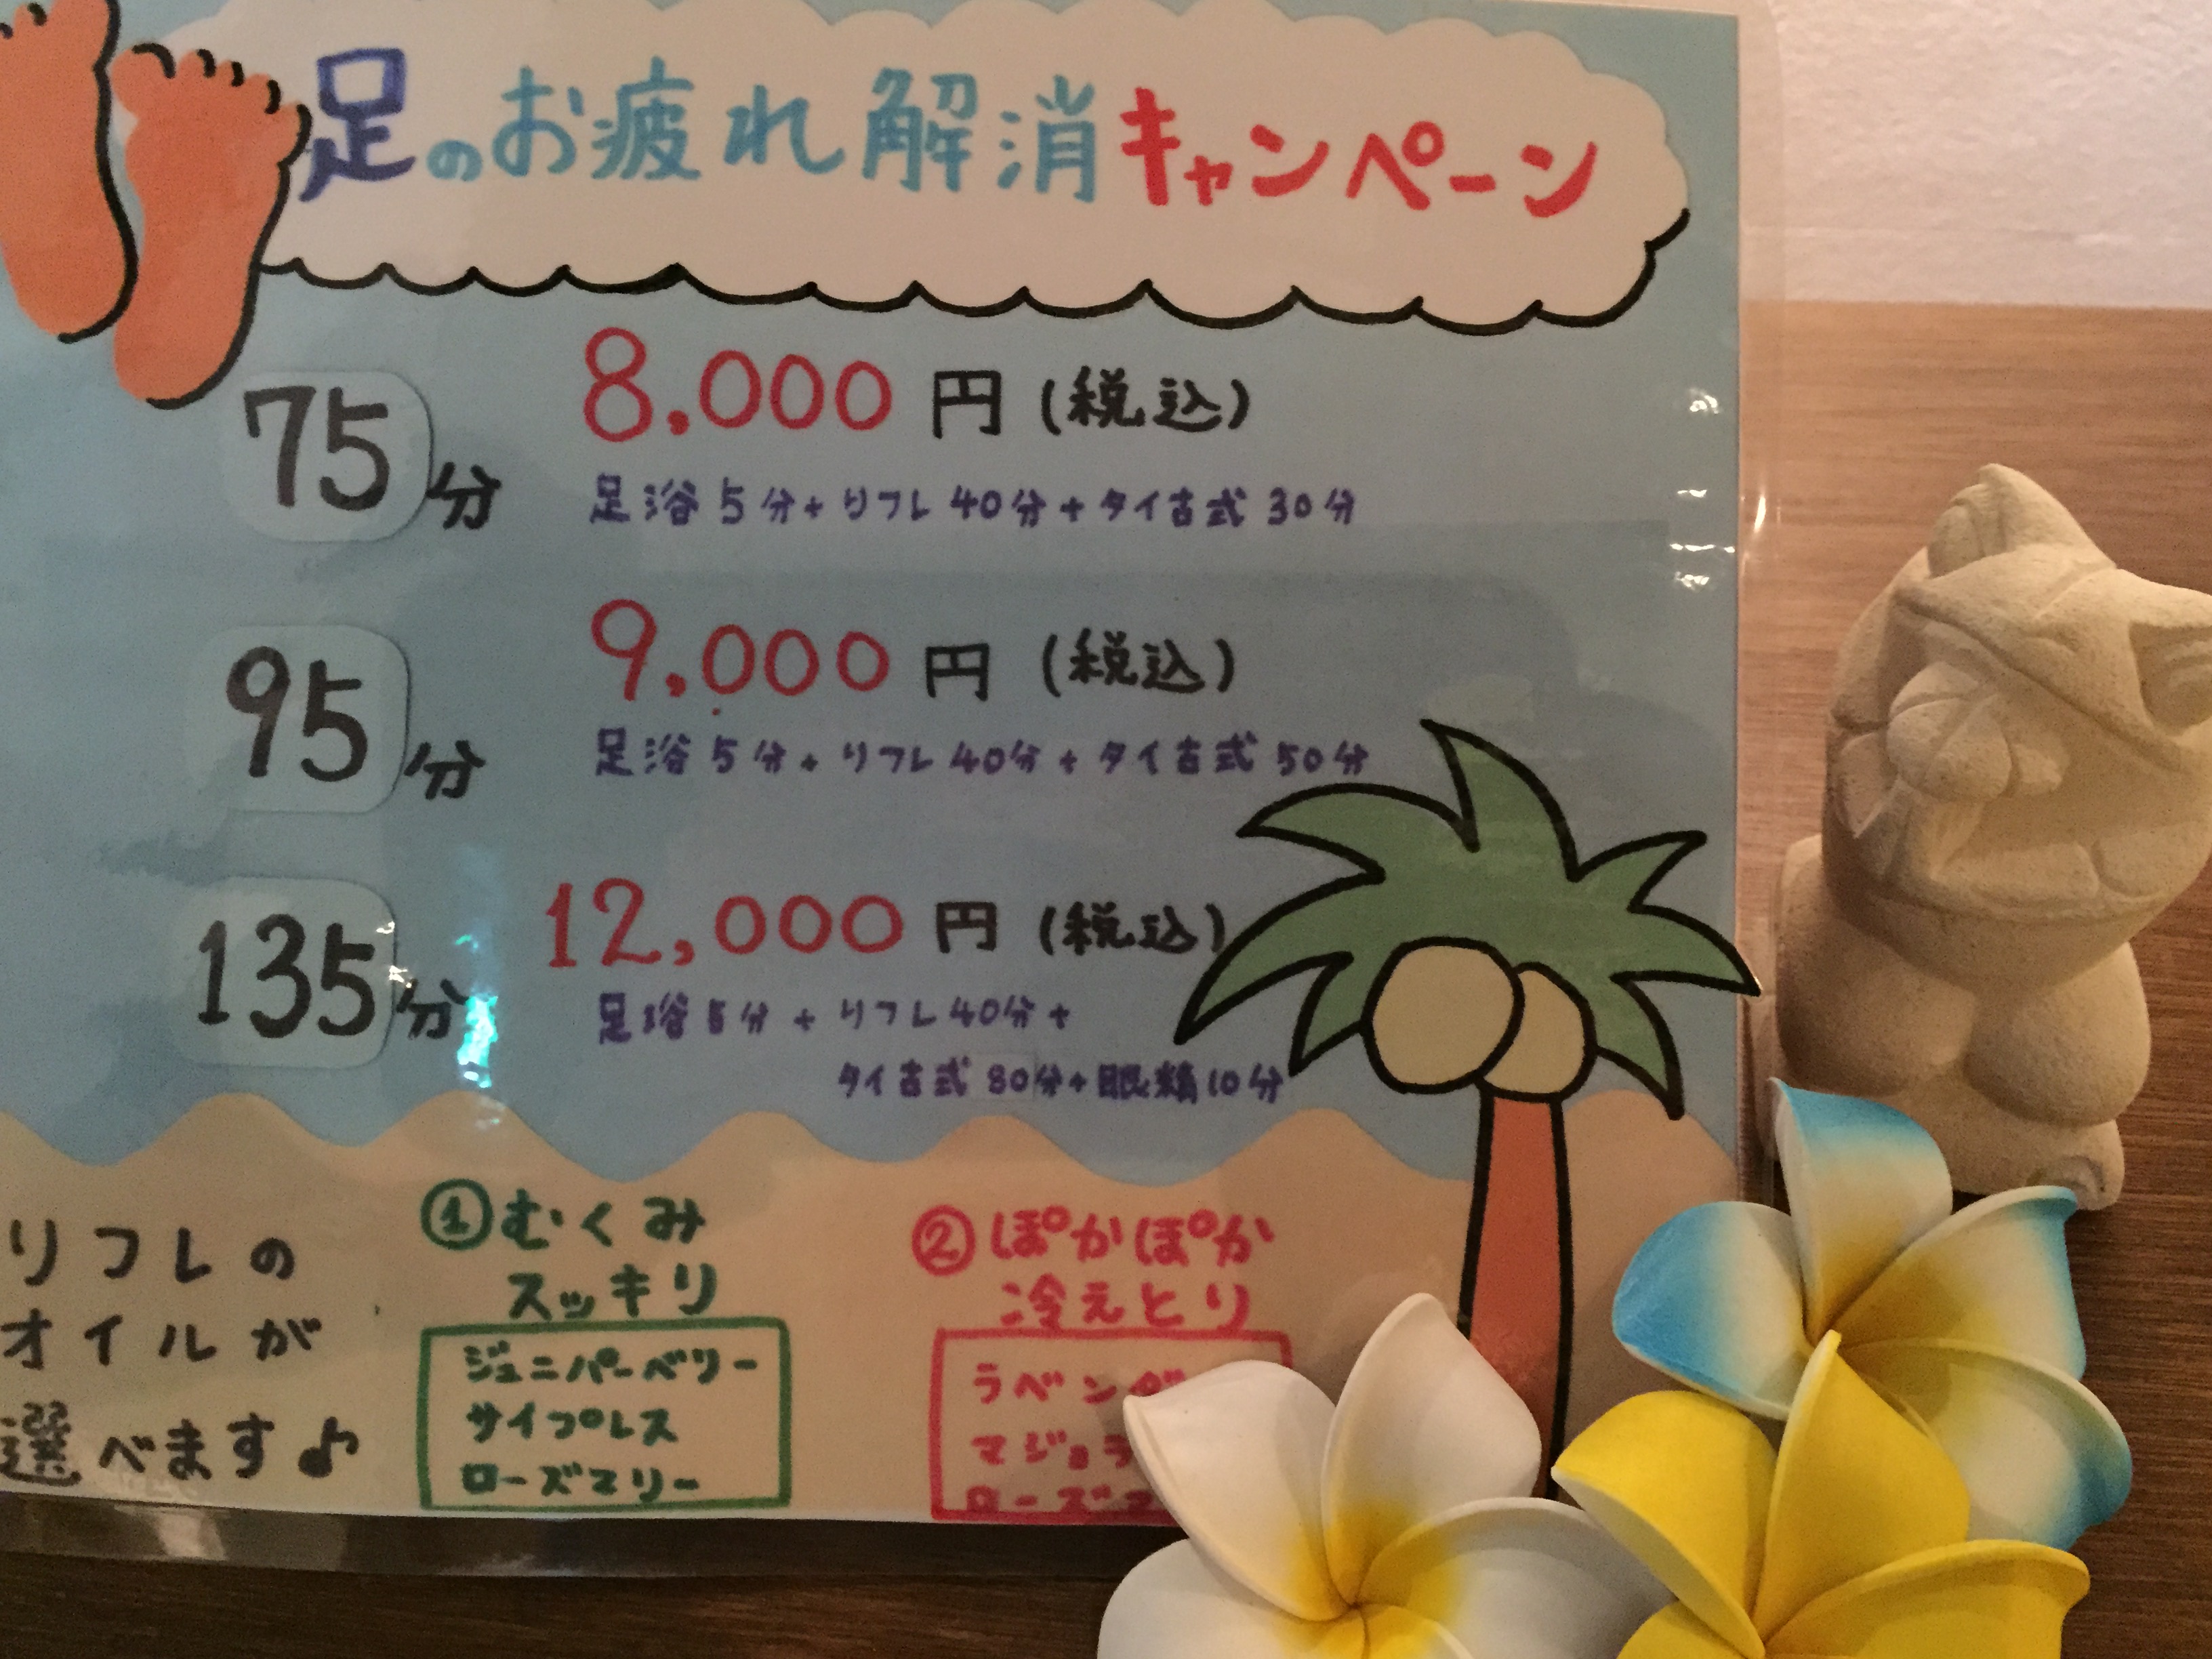 足のお疲れ解消キャンペーン
75分 8,000円(税込)
足浴5分+リフレ40分+タイ古式30分
95分 9,000円(税込)
足浴5分+リフレ40分+タイ古式50分
135分 12,000円(税込)
足浴5分+リフレ40分+
タイ古式80分+眼精10分
リフレの
オイルが
選べます♪
①むくみ
スッキリ
ジュニパーベリー
サイプレス
ローズマリー
②ぽかぽか
冷えとり
ラベンダ
マジョラ
ローズマ